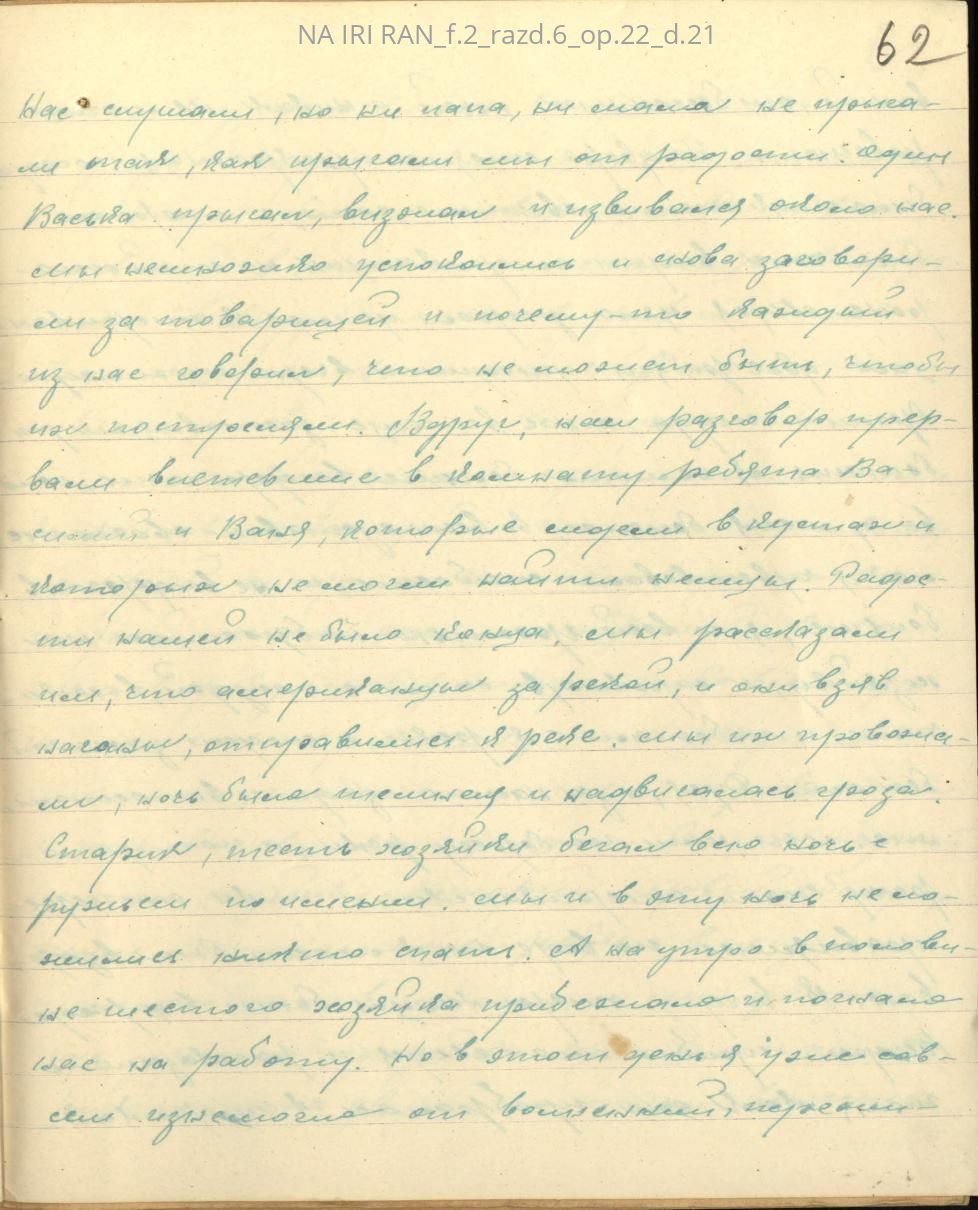 NA IRI RAN_f.2_razd.6_op.22_d.21
62
Нас слушали, но ни папа, ни мама не прыга-
ли так, как прыгали мы от радости. Один
Васька прыгал, визжал и извивался около нас.
Мы немножко успокоились и снова заговори-
ли за товарищей и почему-то каждый
из нас говорил, что не может быть, чтобы
их постреляли. Вдруг, наш разговор прер-
вали влетевшие в комнату ребята Ва-
силий и Ваня, которые сидели в кустах и
которых не могли найти немцы. Радос-
ти нашей не было конца. Мы рассказали
им, что американцы за рекой, и они взяв
наганы, отправились к реке. Мы их провожа-
ли, ночь была темная и надвигалась гроза.
Старик, тесть хозяйки бегал всю ночь с
ружьем по имению. Мы и в эту ночь не ло-
жились никто спать. А на утро в полови-
не шестого хозяйка прибежала и погнала
нас на работу. Но в этот день я уже сов-
сем изнемогла от волнений, пережи-